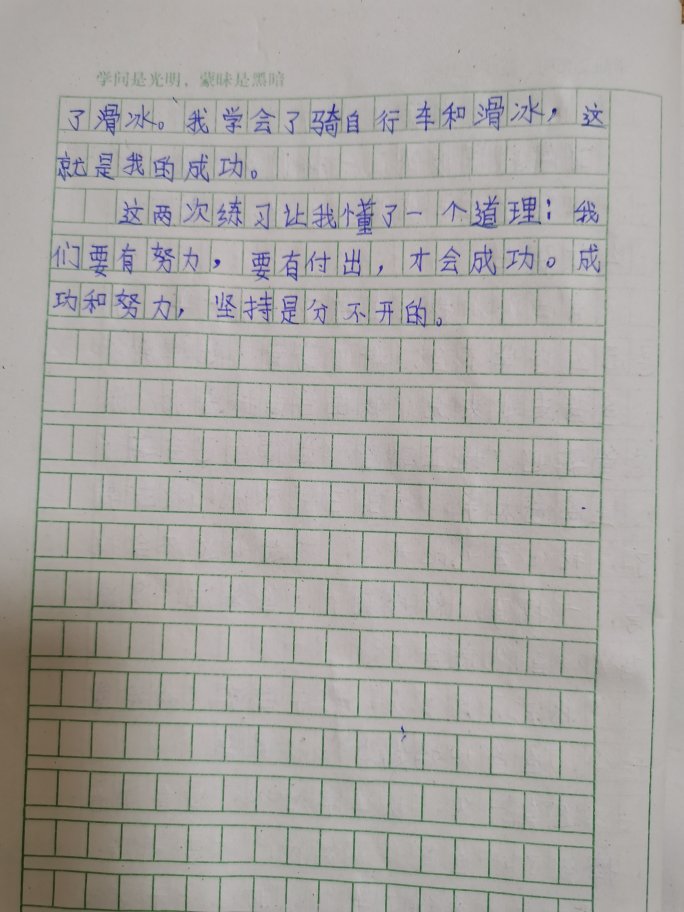 学问是光明，蒙昧是黑暗
了滑冰。我学会了骑自行车和滑冰，这
就是我的成功。
这两次练习让我懂了一个道理：我
们要有努力，要有付出，才会成功。成
功和努力，坚持是分不开的。